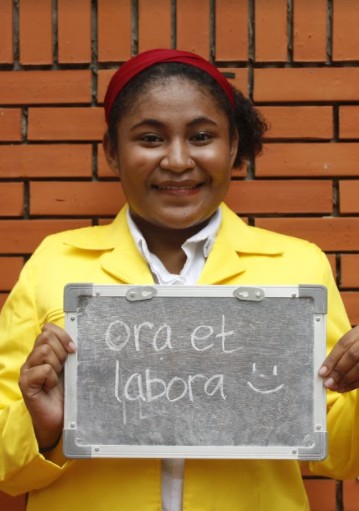 ora et
labora